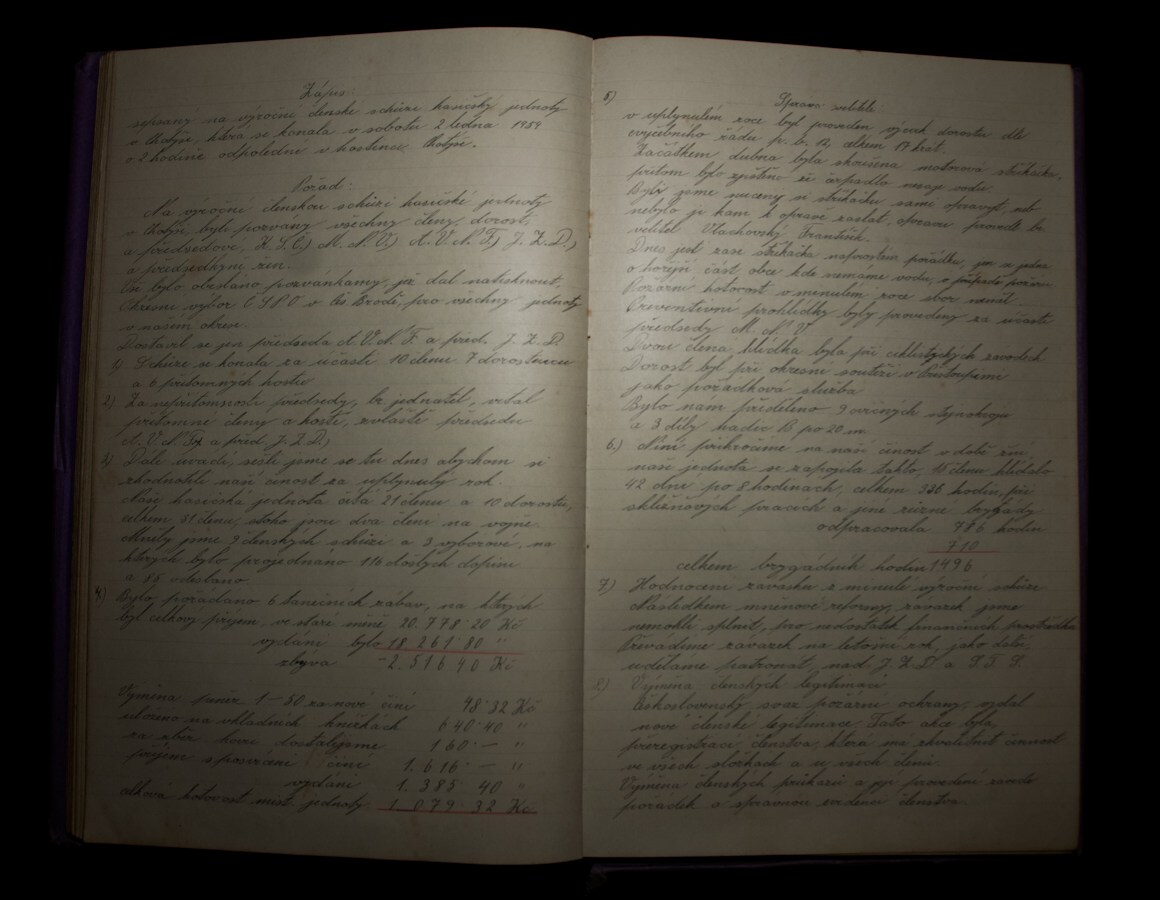 Zápis:
sepsaný na výroční členské schůzi hasičský jednoty
v Chotýši, která se konala v sobotu 2 ledna 1954
o 2 hodině odpoledne v hostinci, Chotýše.
Pořad:
Na výroční členskou schůzi hasičské jednoty
v Chotýši, byli pozvány všechny členy, dorost,
a předsedové, M. N. V., A. V. N. F., J. Z. D.,
a předsedkyni žen.
Vše bylo obesláno pozvánkamy, jež dal natisknout,
Okresní výbor Č. S. P. O. v Čes Brodě, pro všechny jednoty
v našem okrese.
Dostavil se jen předseda A. V. N. F. a před. J. Z. D.
1) Schůze se konala za účasti 10 členu 7 dorostencu
a 6 přítomných hostív
2.) Za nepřítomnosti předsedy, br. jednatel, vítal
přítomné členy a hosté, zvláště předsedu
A. V. N. F., a před. J. Z. D.,
3.) Dále uvádí, sešli jsme se tu dnes abychom si
zhodnotili naši činost za uplynulý rok.
Naše hasičská jednota čítá 21 členu a 10 dorostu,
celkem 31 členu, stoho jsou dva členi na vojně.
Měly jsme 9 členských schůzí a 3 výborové, na
kterých bylo projednáno 114 došlých dopisu
a 85 odesláno.
4.) Bylo pořádano 6 tanečních zábav, na kterých
byl celkový příjem, ve staré měně 20.778·20 Kčs
vydání bylo 18 261·80 "
zbývá - 2.516 40 Kčs
Výměna peněz 1–50 za nové činí 48·32 Kčs
uloženo na vkladních knížkách 640·40 "
za sběr kovu dostalijsme 160·— "
příjem s posvícení činí 1.616·— "
vydání 1.385·40 "
celková hotovost míst. jednoty 1 079·32 Kčs
5) Zpráva velitele:
v uplynulém roce byl proveden, výcvik dorostu dle
cvyčebního řádu p. o. 12, celkem 17 krát.
Začátkem dubna byla skoušena motorová stříkačka,
přitom bylo zjištěno že čerpadlo nesaje vodu.
Byly jsme nuceny si stříkačku sami opravyt, neb
nebylo je kam k opravě zaslat, opravu provedl br.
velitel Vlachovský František.
Dnes jest zase stříkačka napovostím pořádku, jen se jedna
o hořejší část obce kde nemáme vodu, v případě požáru
Požární hotovost v minulém roce sbor neměl.
Preventivní prohlídky byly provedeny za účasti
předsedy M. N. V.
Dvou členná hlídka byla při ciklistyckých zavodech
Dorost byl při okresní soutěži v Přistoupimi
jako pořádková služba
Bylo nám přiděleno 9 cvičných stejnokrojů
a 3 díly hadic B po 20 m.
6.) Nyní přikročíme na naši činost v době žní,
naše jednota se zapojila takto, 15 členu hlídalo
42 dne po 8 hodinách, celkem 336 hodin, při
sklizňových pracích a jiné různé brygády
odpracovala 786 hodin
710
celkem brygádník hodin 1496
7.) Hodnocení závasku z minulé výroční schůze
Následkem měnové reformy, závazek jsme
nemohli splnit, pro nedostatek finančních prostředku
Převádíme závazek na letošní rok, jako další,
uděláme patronat, nad J. Z. D. a S. T. S.
8.) Výměna členských legitimací
Československý svaz požární ochrany, vydal
nové členské legitimace, Tato akce byla,
přeregistrací členstva, která má zkvalitnit činnost
ve všech složkách a u všech členů.
Výměna členských průkazů a její provedení zavede
pořádek a správnou evidenci členstva.